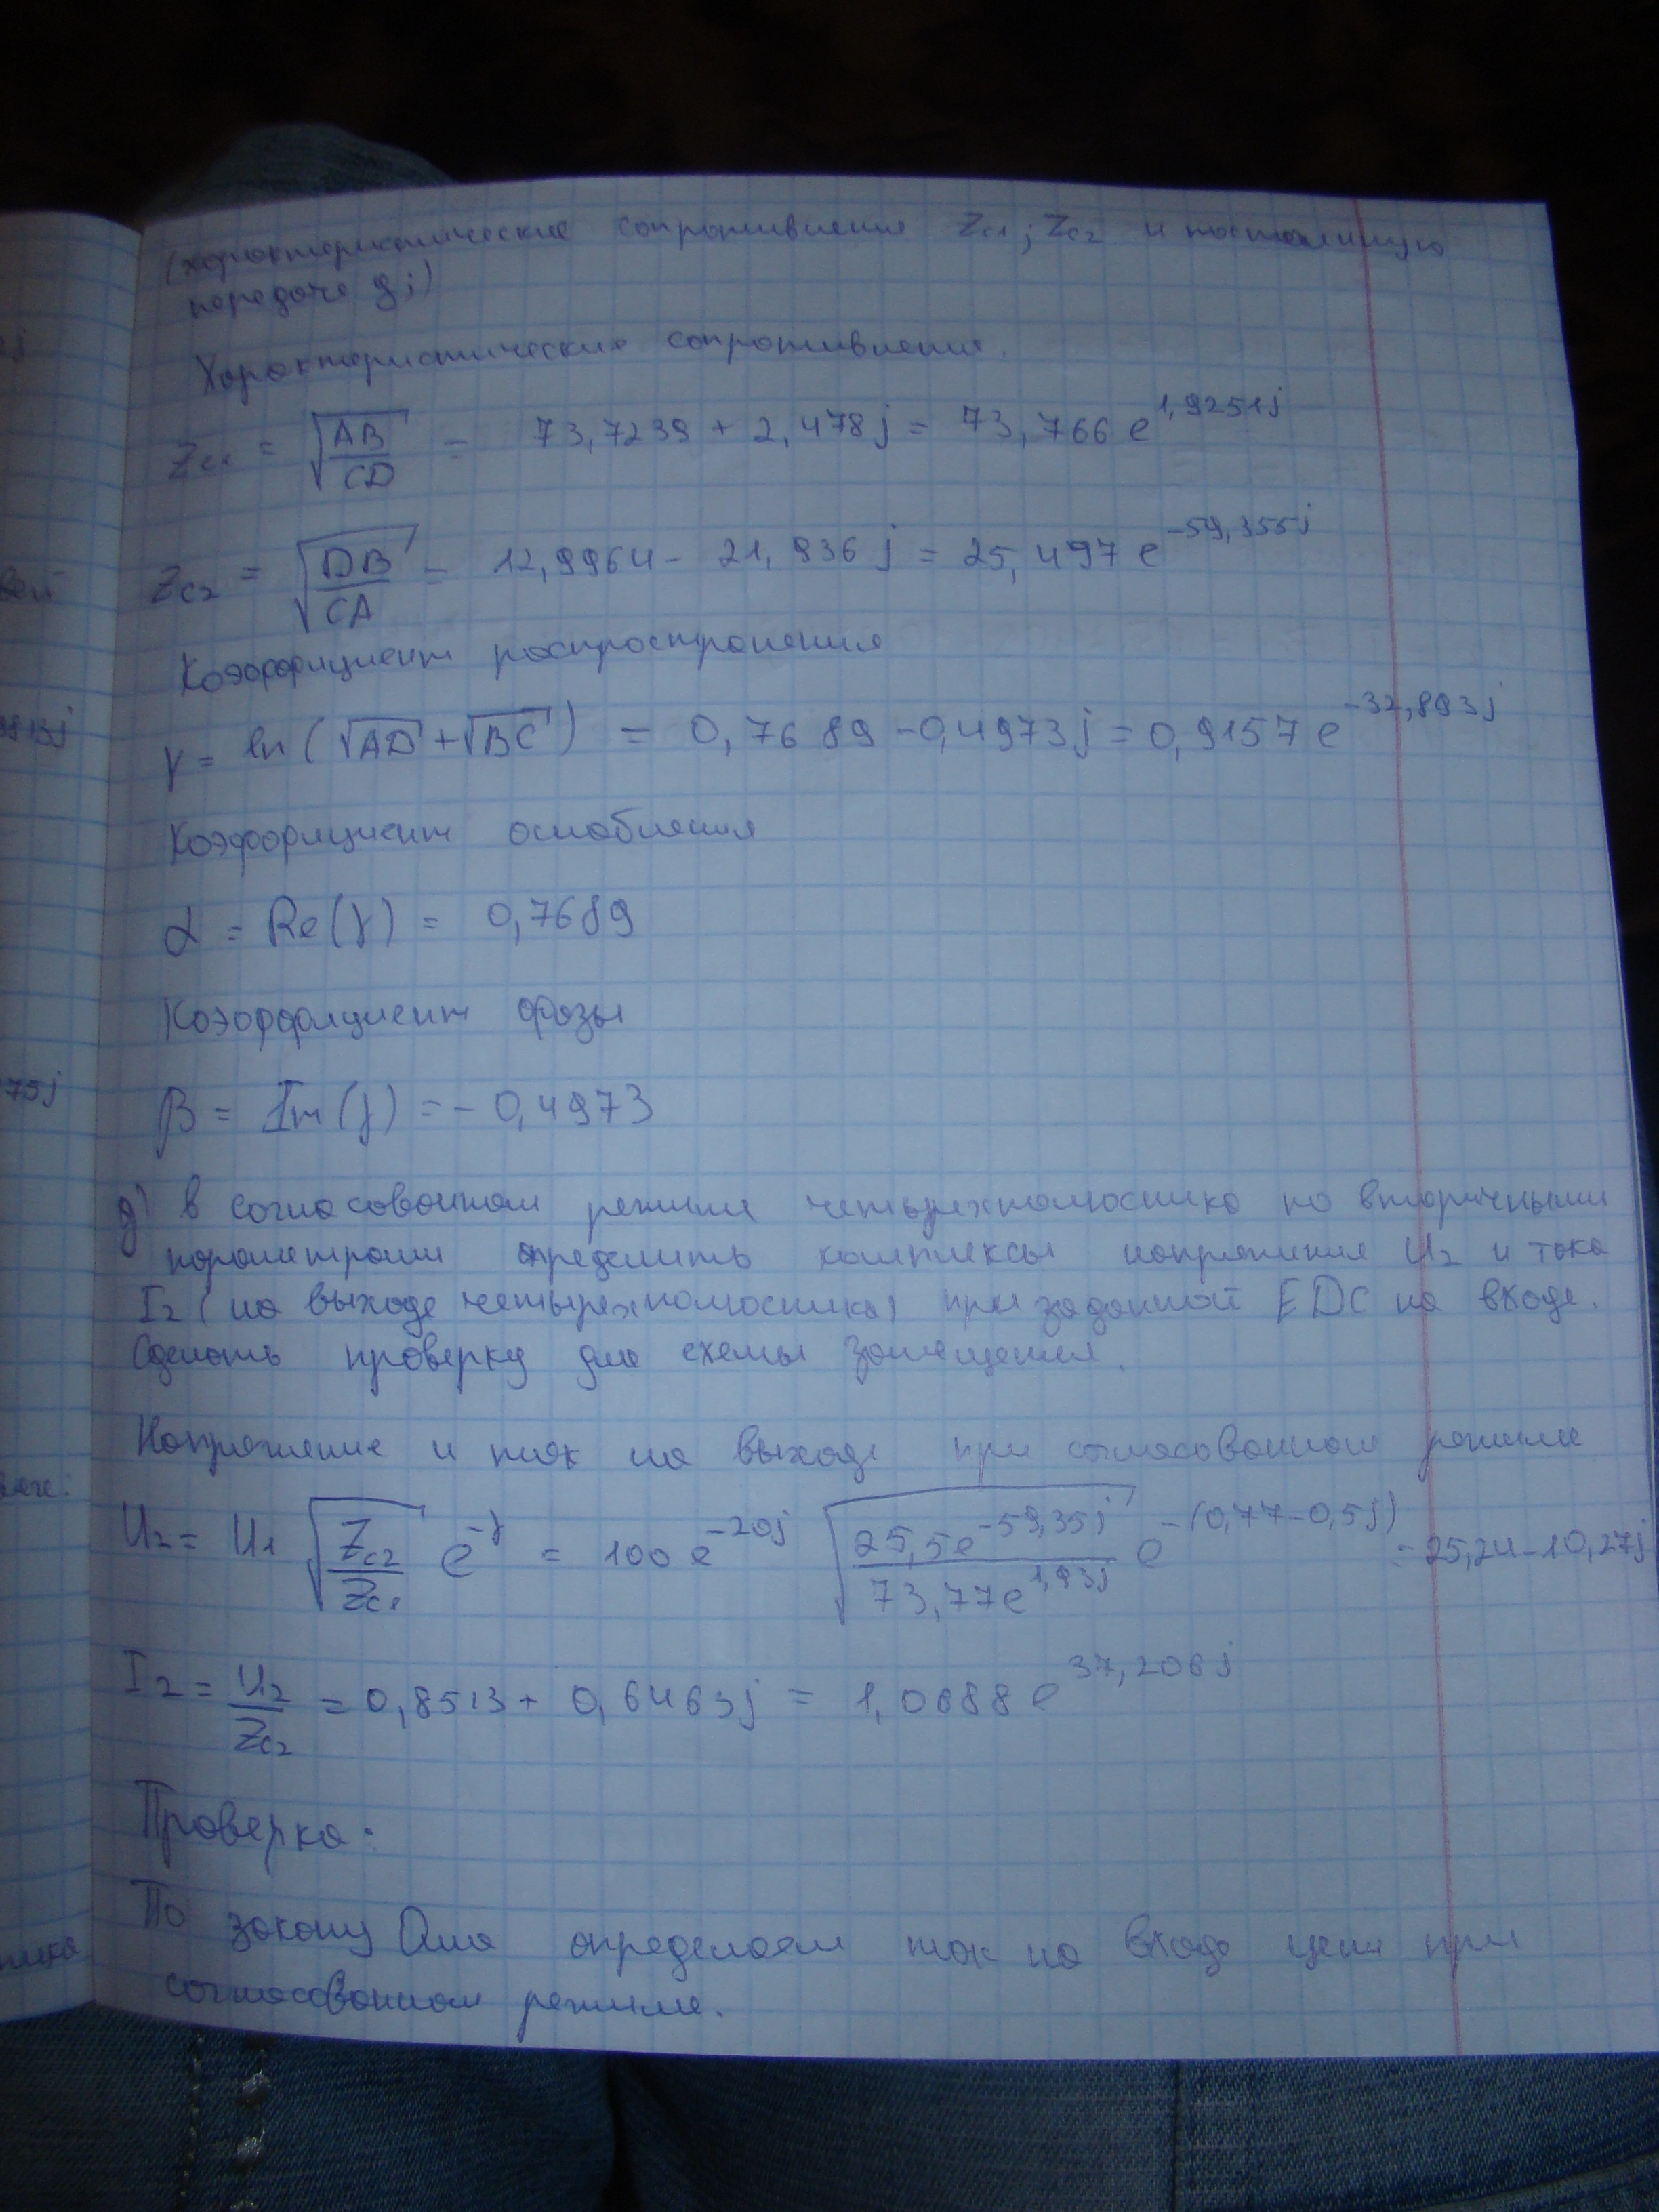 (характеристические сопротивления Zc1; Zc2 и постоянную
передачи g;)
Характеристические сопротивления.
Zc1 = √(AB/CD) = 73,7239 + 2,478j = 73,766 e^1,9251j
Zc2 = √(DB/CA) = 12,9964 - 21,936j = 25,497 e^-59,355j
Коэффициент распространения
γ = ln(√AD + √BC) = 0,7689 - 0,4973j = 0,9157 e^-32,893j
Коэффициент ослабления
α = Re(γ) = 0,7689
Коэффициент фазы
β = Im(γ) = - 0,4973
д) в согласованном режиме четырехполюсника по вторичным
параметрам определить комплексы напряжения U2 и тока
I2 (на выходе четырехполюсника) при заданной ЕДС на входе.
Сделать проверку для схемы замещения.
Напряжение и ток на выходе при согласованном режиме
U2 = U1 √(Zc2/Zc1) e^-γ = 100 e^-20j √(25,5e^-59,35j / 73,77e^1,93j) e^-(0,77-0,5j) = 25,24-10,27j
I2 = U2/Zc2 = 0,8513 + 0,6463j = 1,0688 e^37,206j
Проверка:
По закону Ома определяем ток на входе цепи при
согласованном режиме.